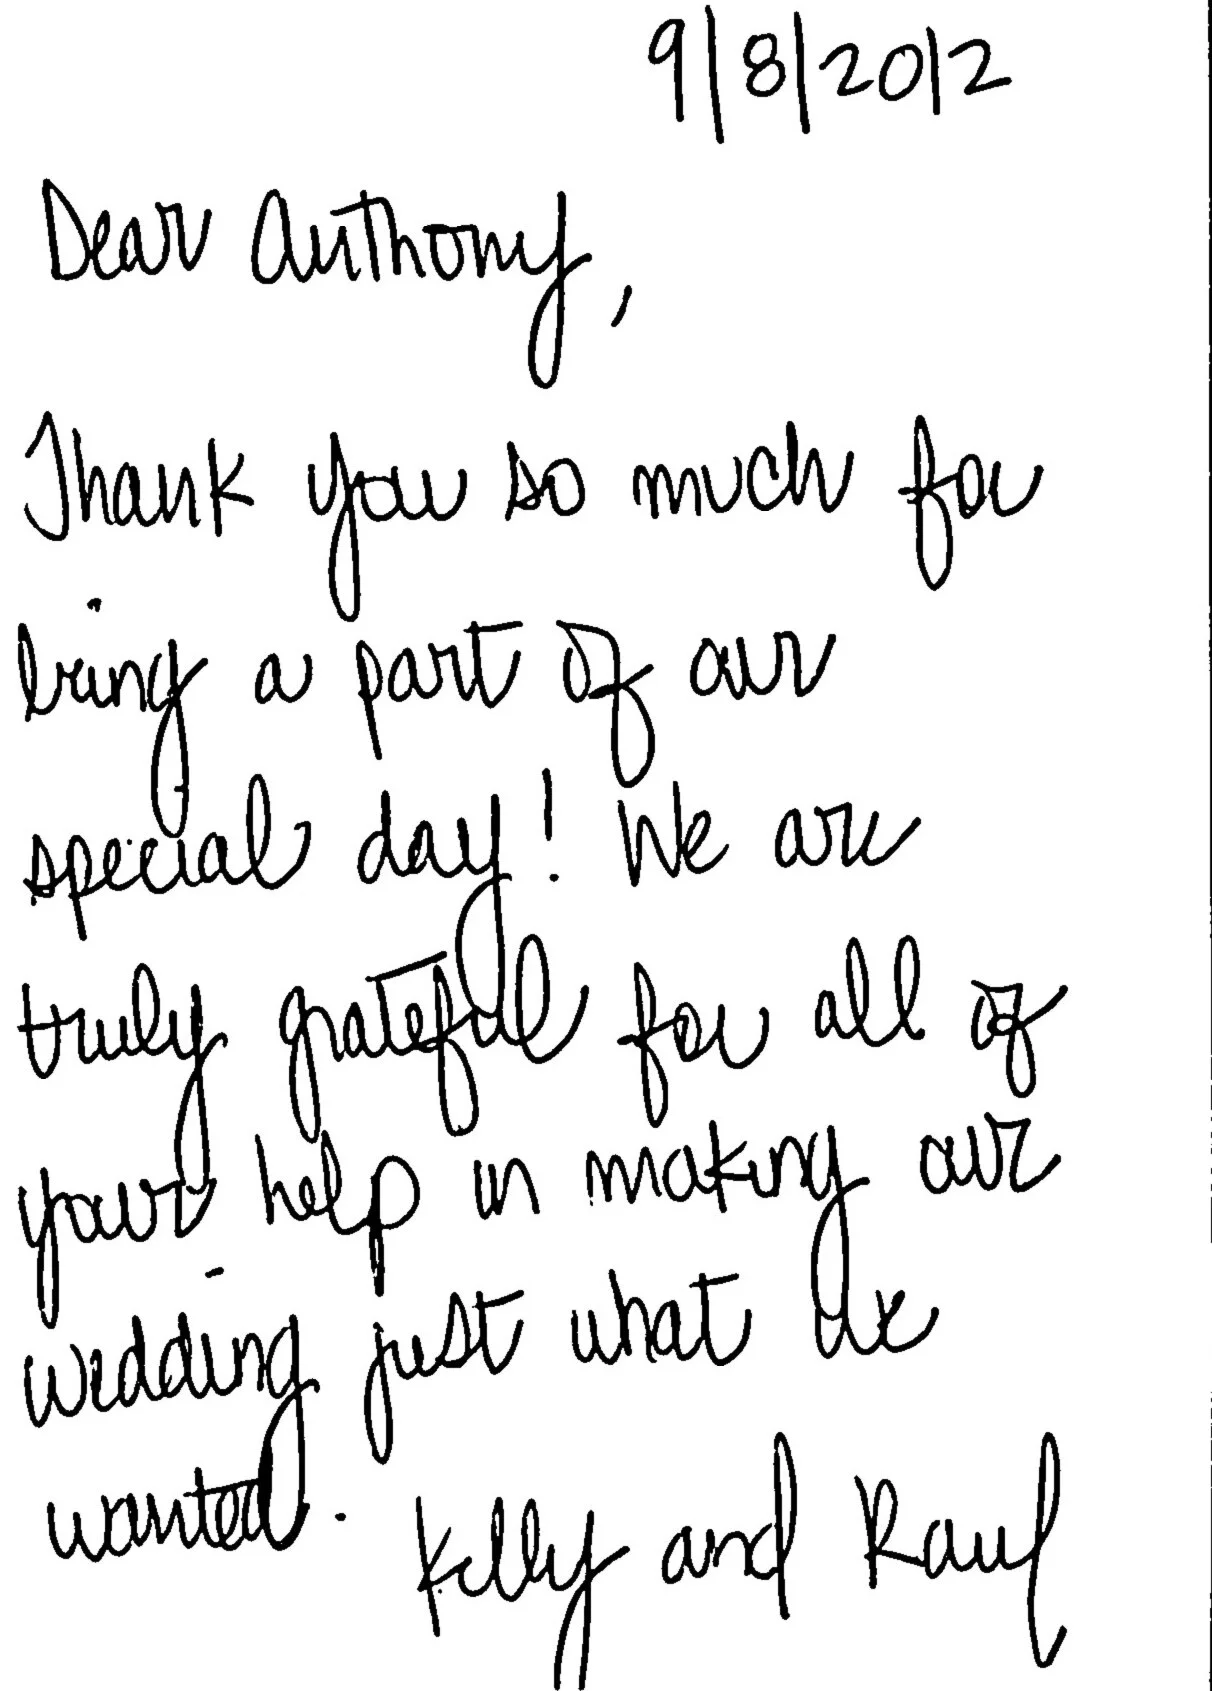 9/8/2012
Dear Anthony,
Thank you so much for
being a part of our
special day! We are
truly grateful for all of
your help in making our
wedding just what we
wanted. Kelly and Rauf